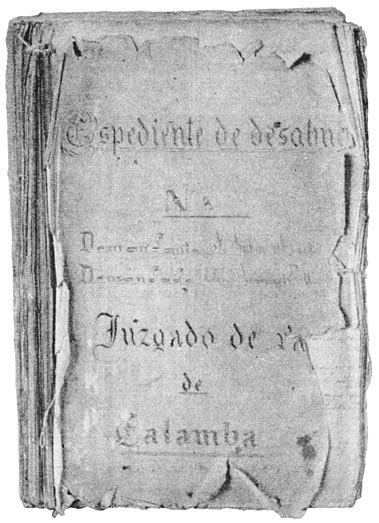 Espediente de desahuc
N 3
Demandante
Demandado
Juzgado de Pa
de
Calamba